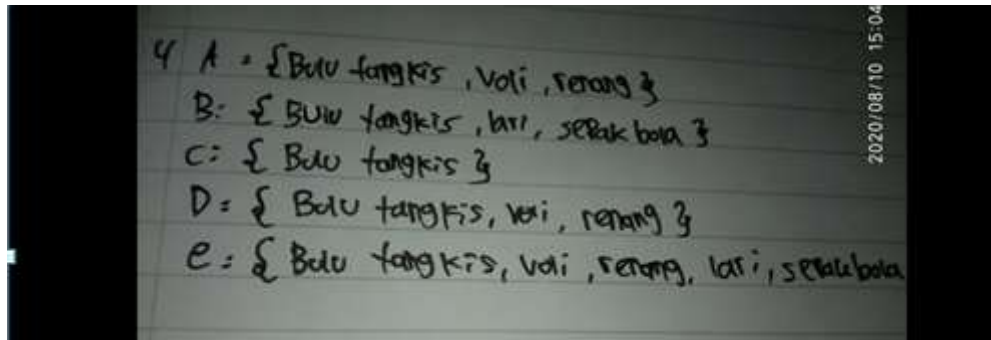 4 A = {Bulu tangkis, Voli, renang}
B: {Bulu tangkis, lari, sepak bola}
C: {Bulu tangkis}
D = {Bulu tangkis, voli, renang}
e: {Bulu tangkis, voli, renang, lari, sepak bola
2020/08/10 15:04